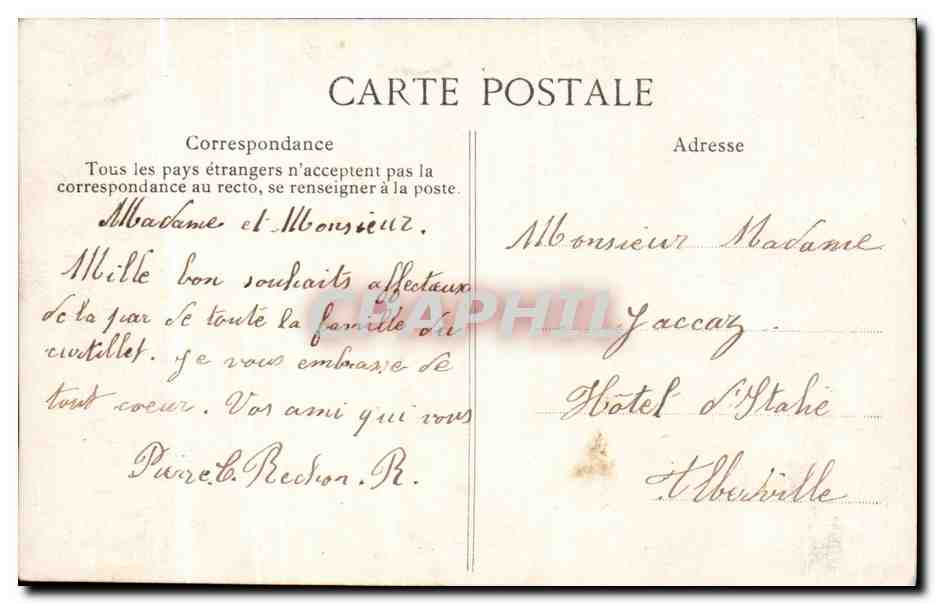 CARTE POSTALE
Correspondance
Tous les pays étrangers n'acceptent pas la
correspondance au recto, se renseigner à la poste.
Madame et Monsieur.
Mille bon souhaits affectueux
de la par de toute la famille du
curtillet. Je vous embrasse de
tout coeur. Vos ami qui vous
Pierre. C. Rechon. R.
Adresse
Monsieur Madame
Jaccaz
Hôtel d'Italie
Albertville
CPAPHIL